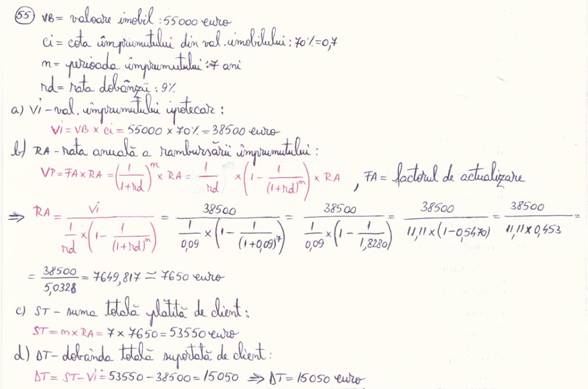 55) VB = valoare imobil : 55000 euro
ci = cota împrumutului din val. imobilului : 70% = 0,7
n = perioada împrumutului : 7 ani
rd = rata dobânzii : 9%
a) Vi - val. împrumutului ipotecar :
Vi = VB × ci = 55000 × 70% = 38500 euro
b) RA - rata anuală a rambursării împrumutului :
VP = FA × RA = (1/(1+rd))^n × RA = 1/rd × (1 - 1/(1+rd)^n) × RA , FA = factorul de actualizare
⇒ RA = Vi / (1/rd × (1 - 1/(1+rd)^n)) = 38500 / (1/0,09 × (1 - 1/(1+0,09)^7)) = 38500 / (1/0,09 × (1 - 1/1,8280)) = 38500 / (11,11 × (1-0,5470)) = 38500 / (11,11 × 0,453) =
= 38500/5,0328 = 7649,817 ≃ 7650 euro
c) ST - suma totală plătită de client :
ST = n × RA = 7 × 7650 = 53550 euro
d) ΔT - dobânda totală suportată de client :
ΔT = ST - Vi = 53550 - 38500 = 15050 ⇒ ΔT = 15050 euro